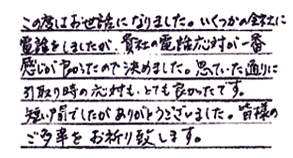 この度はお世話になりました。いくつかの会社に
電話をしましたが、貴社の電話応対が一番
感じが良かったので決めました。思っていた通りに
引取り時の応対も、とても良かったです。
短い間でしたがありがとうございました。皆様の
ご多幸をお祈り致します。